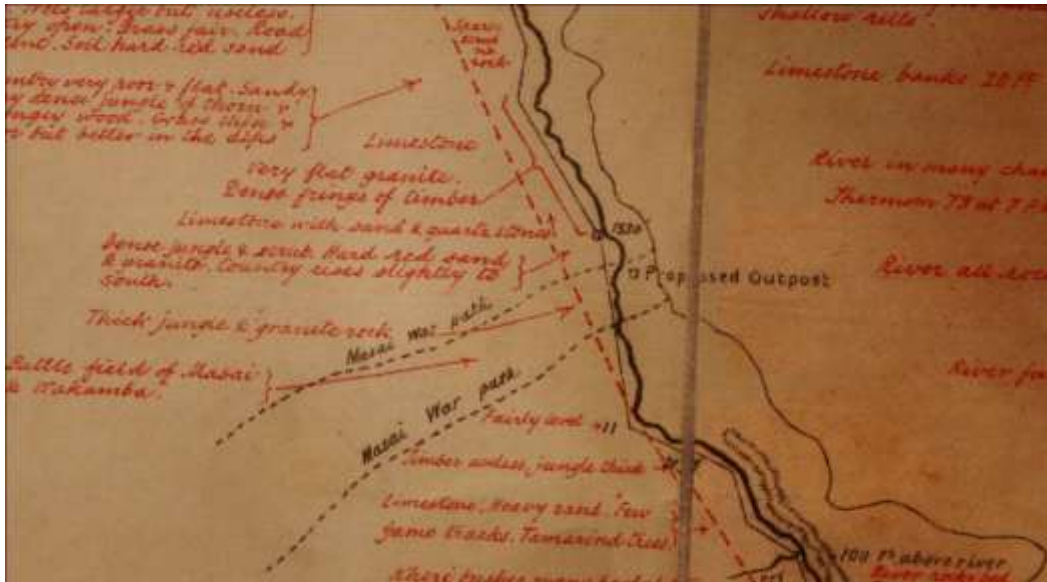 Trees useless.
open. Grass fair. Road
Soil hard red sand
very poor & flat. Sandy
dense jungle of thorn &
wood. Grass thin &
but better in the dips
rock
Limestone
Very flat granite.
Dense fringe of timber
Limestone with sand & quartz stones
Dense jungle & scrub. Hard red sand
& granite. Country rises slightly to
South.
Thick jungle & granite rock
Battle field of Masai
& Wakamba.
Masai War path
Masai War path
1530
Proposed Outpost
Fairly level
Timber useless, jungle thick
Limestone, Heavy sand. Few
game tracks. Tamarind trees.
bushes
100 ft above river
Shallow
Limestone banks 20 ft
River in many
Thermom 73 at 7
River all
River